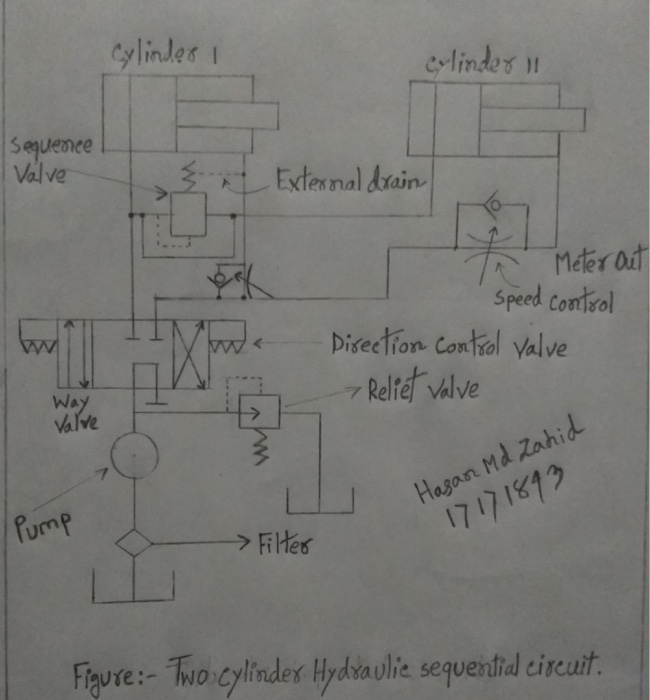 Cylinder I
Cylinder II
Sequence
Valve
External drain
Meter Out
Speed Control
Direction Control Valve
Way
Valve
Relief Valve
Hasan Md Zahid
17171893
Pump
Filter
Figure:- Two cylinder Hydraulic sequential circuit.